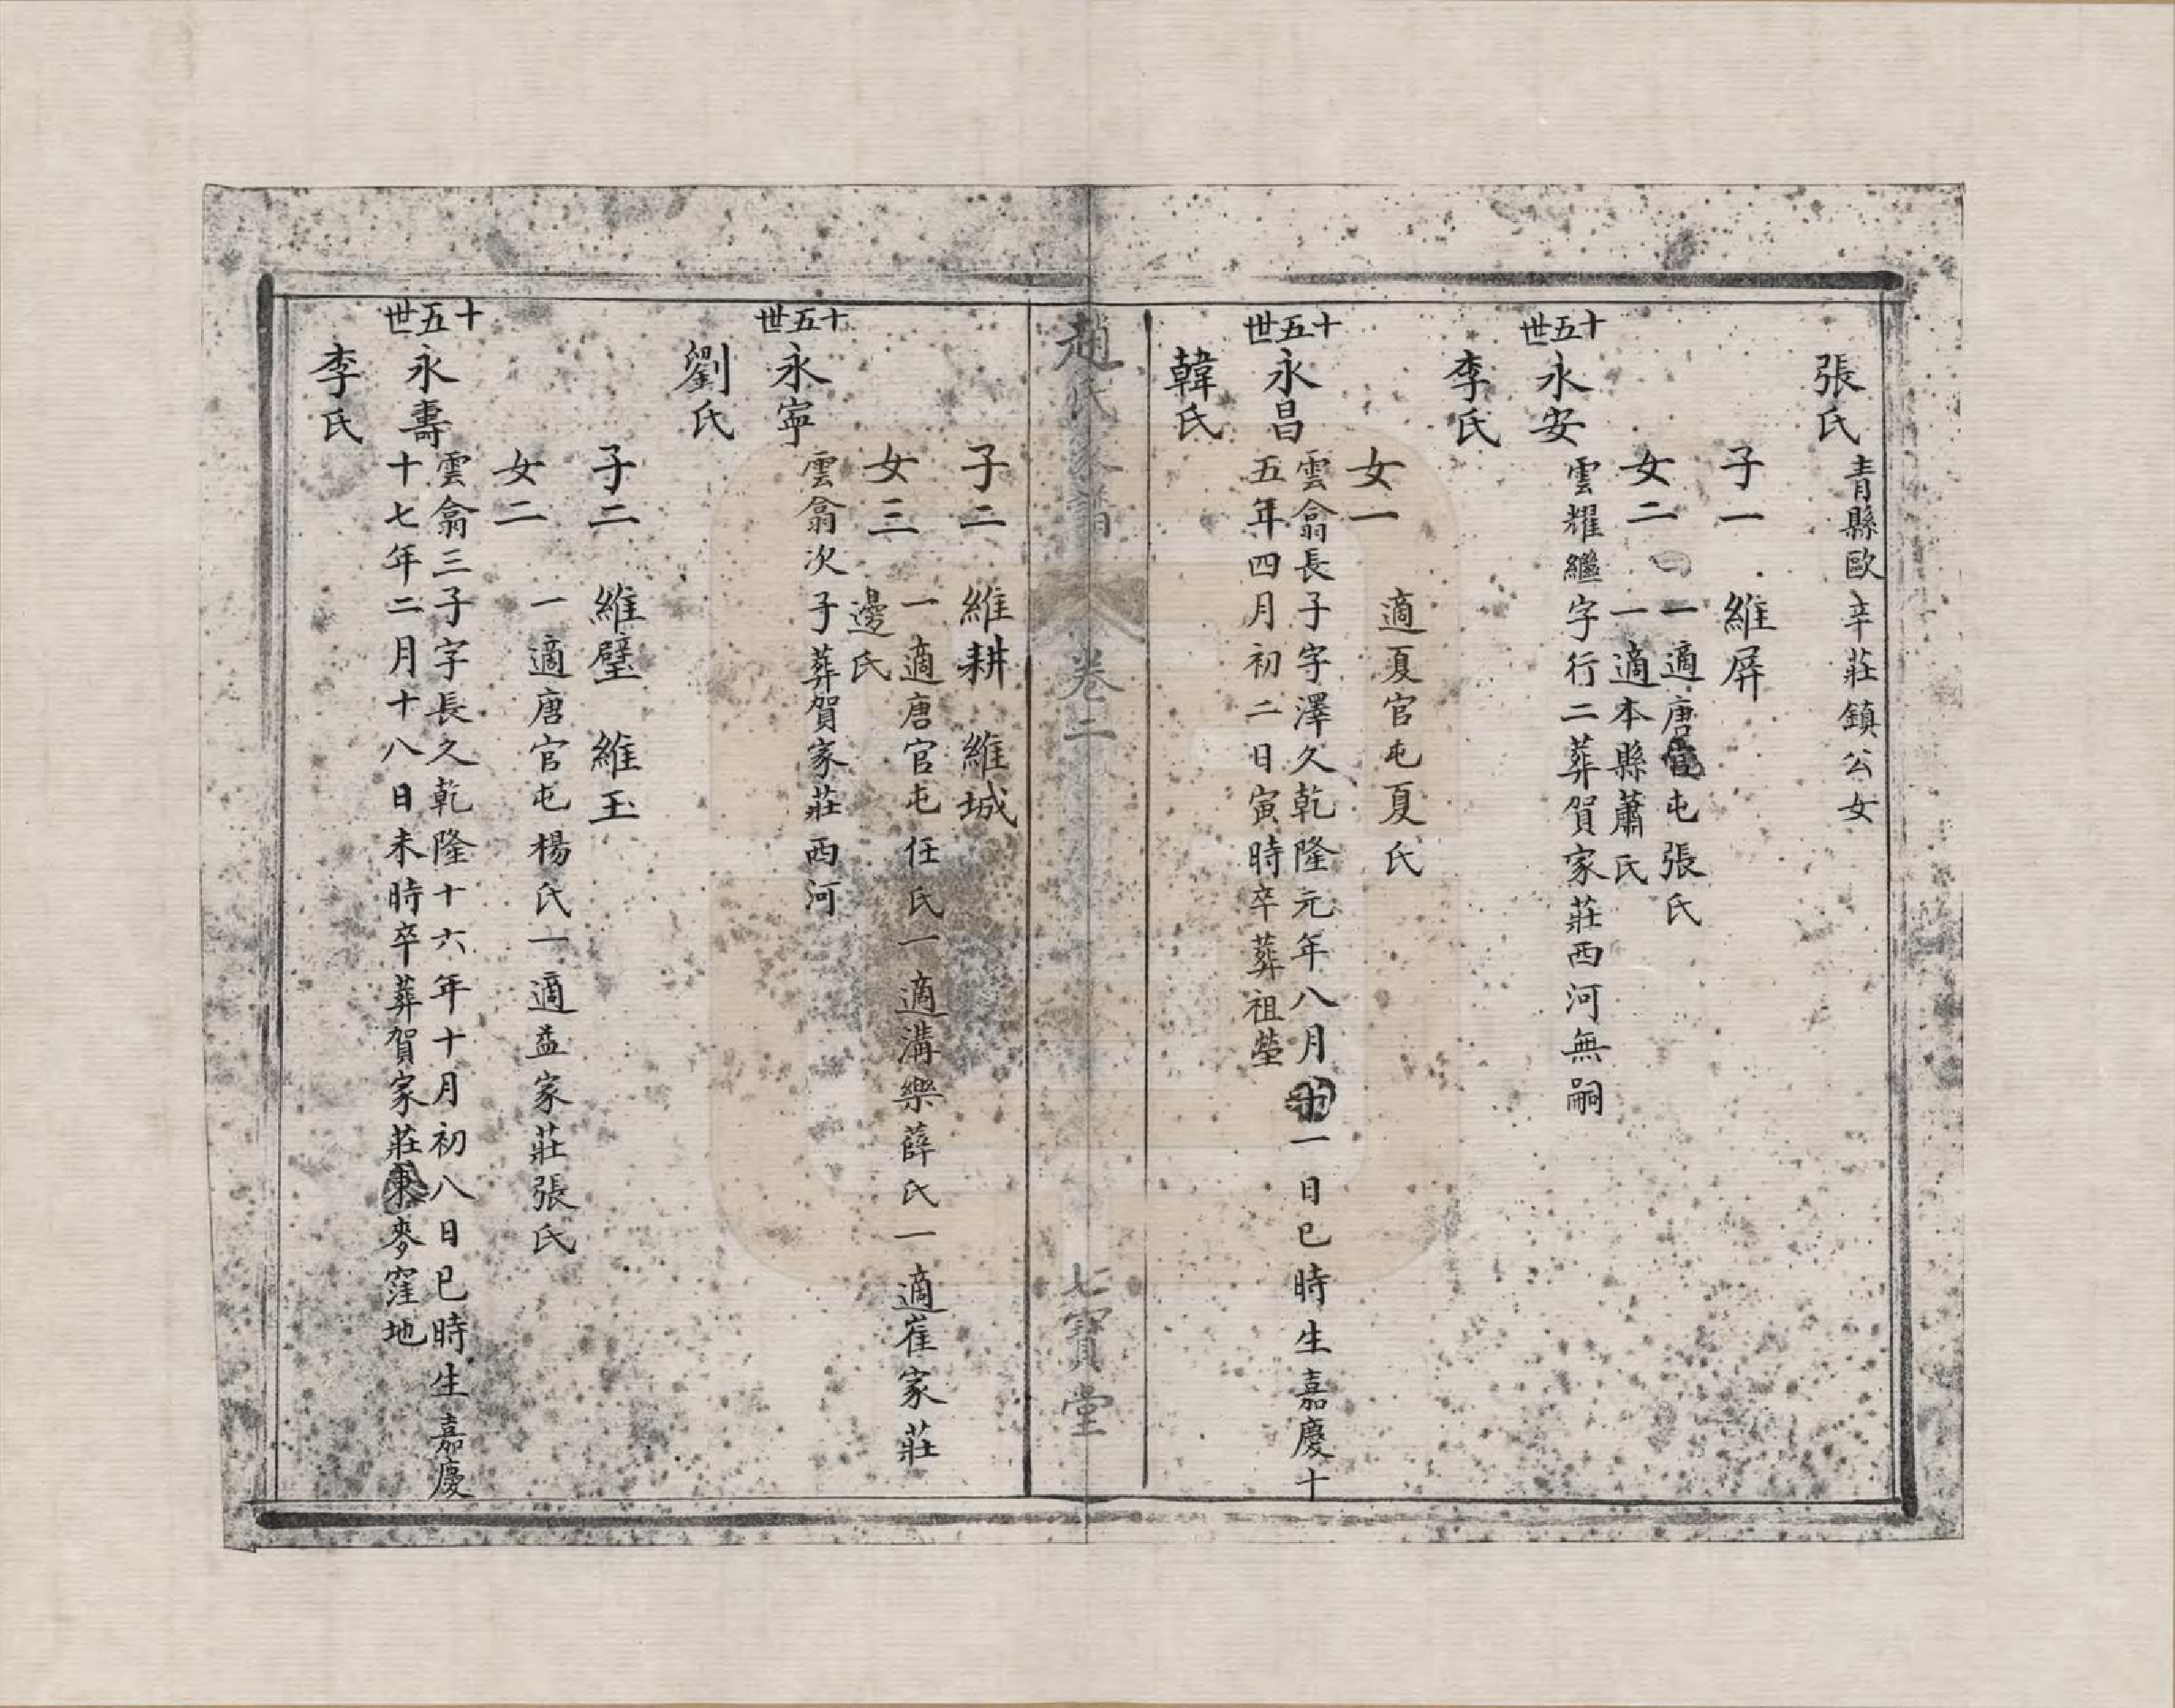 張氏 青縣歐辛莊鎮公女
子一 維屏
女二 一適唐官屯張氏
一適本縣蕭氏
十五世 永安 雲耀繼字行二葬賀家莊西河無嗣
李氏
女一 適夏官屯夏氏
十五世 永昌 雲翕長子字澤久乾隆元年八月十一日巳時生嘉慶十
五年四月初二日寅時卒葬祖塋
韓氏
趙氏家譜 卷二 七寶堂
子二 維耕 維城
女三 一適唐官屯任氏一適溝樂薛氏一適崔家莊
邊氏
十五世 永寧 雲翕次子葬賀家莊西河
劉氏
子二 維璧 維玉
女二 一適唐官屯楊氏一適孟家莊張氏
十五世 永壽 雲翕三子字長久乾隆十六年十月初八日巳時生嘉慶
十七年二月十八日未時卒葬賀家莊東麥窪地
李氏